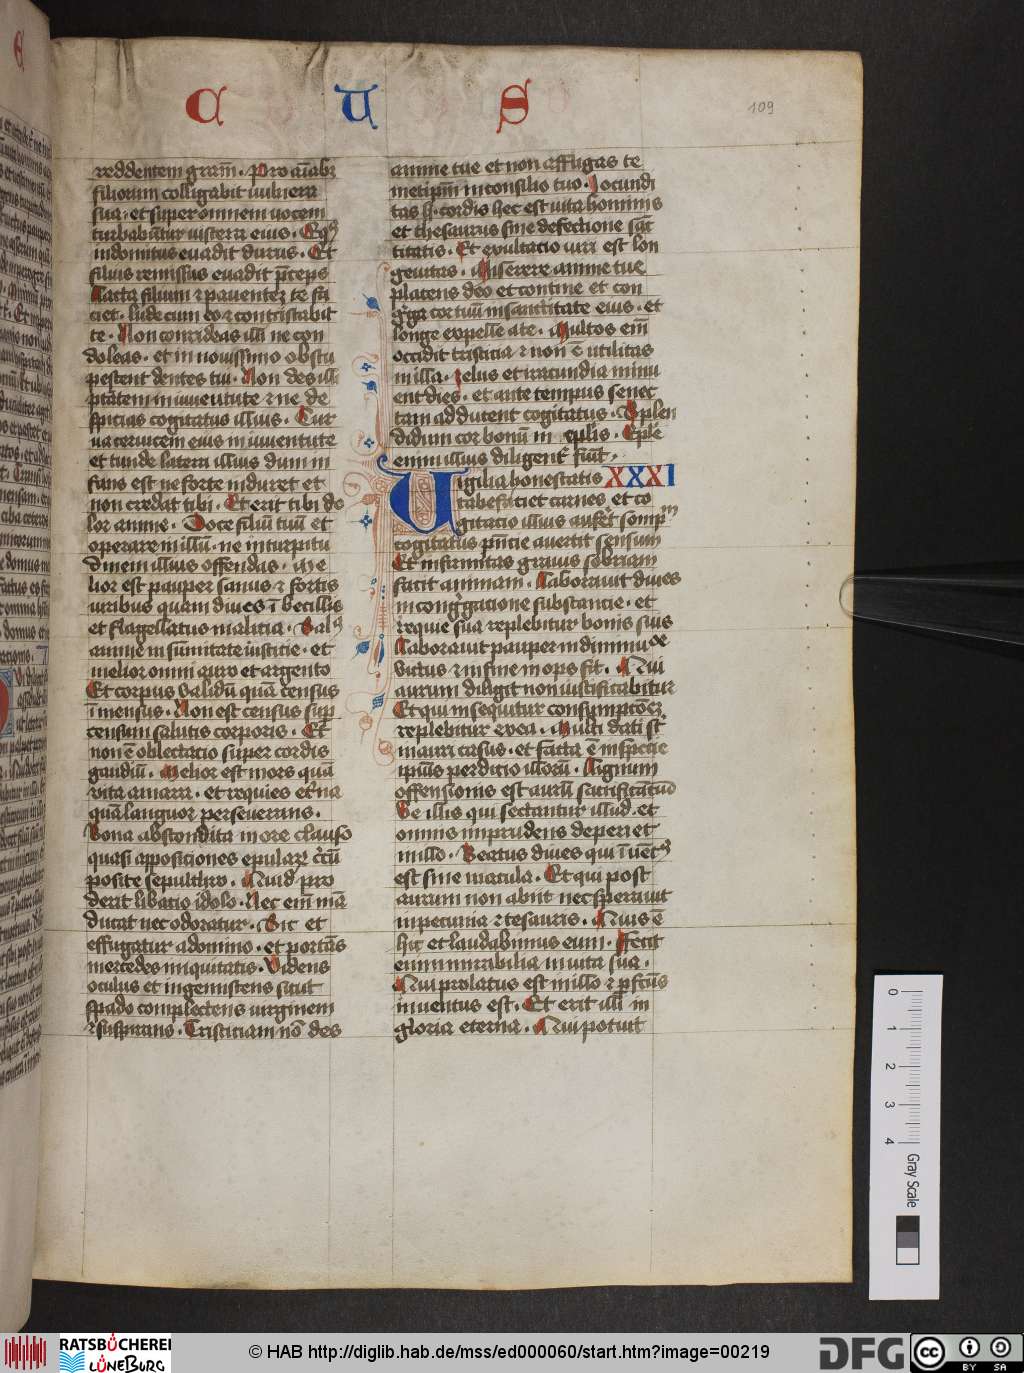 C U S
109
reddentem gram̄. Pro aīabz
filiorum colligabit vulnera
sua. et super omnem vocem
turbabūtur viscera eius. Eqꝰ
indomitus evadit durus. Et
filius remissus evadit p̄ceps
Lacta filium ⁊ paventeꝫ te fa
ciet. lude cum eo ⁊ contristabit
te. Non conrideas illi ne con
doleas. et in novissimo obstu
pescent dentes tui. Non des illi
ptātem in iuventute ⁊ ne de
spicias cogitatus illius. Cur
va cervicem eius in iuventute
et tunde latera illius dum in
fans est ne forte induret et
non credat tibi. Et erit tibi do
lor anime. Doce filiū tuū et
operare in illū. ne in turpitu
dinem illius offendas. Me
lior est pauper sanus ⁊ fortis
viribus quam dives ībecillis
et flagellatus malicia. Salꝰ
anime in sc̄nitate iusticie. et
melior omni auro et argento
Et corpus validū quā census
īmensus. Non est census sup̄
censum salutis corporis. Et
non ē oblectacio super cordis
gaudiū. Melior est mors quā
vita amara. et requies et̄na
quā languor perseverans.
Bona abscondita in ore clauso
quasi apposiciones epularꝝ cͥcū
posite sepulchro. Quid pro
derit libatio idolo. Nec eīm mā
ducat nec odoratur. Sic et
effugatur a domino. et portās
mercedes iniquitatis. Videns
oculus et ingemiscens sicut
spado complectens virginem
⁊ suspirans. Tristiciam nō des
anime tue et non affligas te
metip̄m in consilio tuo. Iocundi
tas cordis hec est vita hominis
et thesaurus sine defectione sāc
titatis. Et exultacio viri est lon
gevitas. Miserere anime tue
placens deo et contine et con
gͥga cor tuū in sanctitate eius. et
longe expelle a te. Multos eīm
occidit tristicia ⁊ non ē utilitas
in illa. Zelus et iracundia minu
ent dies. et ante tempus senec
tam adducent cogitatus. Splen
didum cor bonū in eplis. Eple
enim illius diligent̄ fiūt.
Vigilia honestatis XXXI
tabefaciet carnes. et co
gitacio illius aufert̄ sompᵐ
cogitatus p̄ncie avertit sensum
Et infirmitas gravis sobriam
facit animam. Laboravit dives
in congͥgacione substancie. et
requie sua replebitur bonis suis
Laboravit pauper in diminuᵒᵉ
victus ⁊ in fine inops fit. Qui
aurum diligit non iustificabitur
Et qui insequitur consumptōeꝫ
replebitur ex ea. Multi dati st̄
in auri casus. et facta ē in specie
ipius perditio illorū. Lignum
offensionis est aurū sacrificātiū
Ve illis qui sectantur illud. et
omnis imprudens deperiet
in illo. Beatus dives qui īuētꝰ
est sine macula. Et qui post
aurum non abiit nec speravit
in pecunia ⁊ tesauris. Quis ē
hic et laudabimus eum. Fecit
enim mirabilia in vita sua.
Qui probatus est in illo ⁊ pfectus
inventus est. Et erit illi in
gloria eterna. Qui potuit
0 1 2 3 4
Gray Scale
RATSBÜCHEREI
LÜNEBURG
© HAB http://diglib.hab.de/mss/ed000060/start.htm?image=00219
DFG
CC BY SA